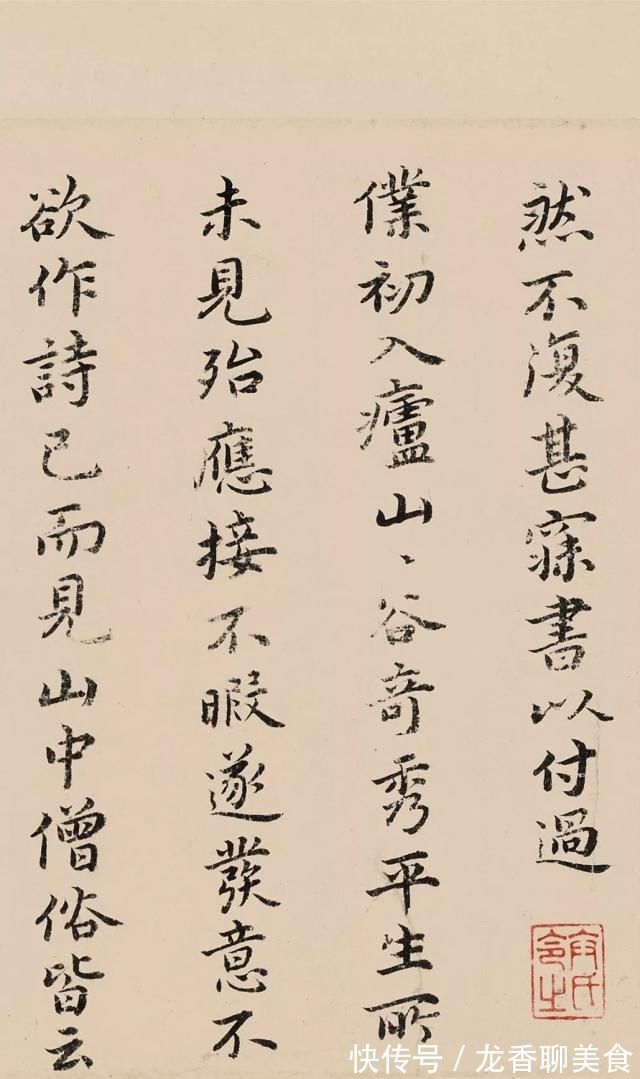 然不復甚寐書以付過
僕初入廬山〻谷奇秀平生所
未見殆應接不暇遂發意不
欲作詩已而見山中僧俗皆云
快传号 / 龙香聊美食